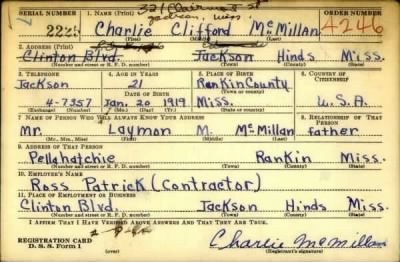 SERIAL NUMBER 1. NAME (Print) 321 Clairmont St ORDER NUMBER
Jackson, Miss.
2225 Charlie Clifford McMillan 4246
(First) (Middle) (Last)
2. ADDRESS (Print)
Clinton Blvd. Jackson Hinds Miss.
(Number and street or R. F. D. number) (Town) (County) (State)
3. TELEPHONE 4. AGE IN YEARS 5. PLACE OF BIRTH 6. COUNTRY OF CITIZENSHIP
Jackson 21 Rankin County
DATE OF BIRTH (Town or county)
4-7357 Jan. 20 1919 Miss. U.S.A.
(Exchange) (Number) (Mo.) (Day) (Yr.) (State or country)
7. NAME OF PERSON WHO WILL ALWAYS KNOW YOUR ADDRESS 8. RELATIONSHIP OF THAT PERSON
Mr. Laymon M. McMillan father
(Mr., Mrs., Miss) (First) (Middle) (Last)
9. ADDRESS OF THAT PERSON
Pellahatchie Rankin Miss.
(Number and street or R. F. D. number) (Town) (County) (State)
10. EMPLOYER'S NAME
Ross Patrick (Contractor)
11. PLACE OF EMPLOYMENT OR BUSINESS
Clinton Blvd. Jackson Hinds Miss.
(Number and street or R. F. D. number) (Town) (County) (State)
I AFFIRM THAT I HAVE VERIFIED ABOVE ANSWERS AND THAT THEY ARE TRUE.
REGISTRATION CARD
D. S. S. Form 1 (over) Charlie McMillan
(Registrant's signature)